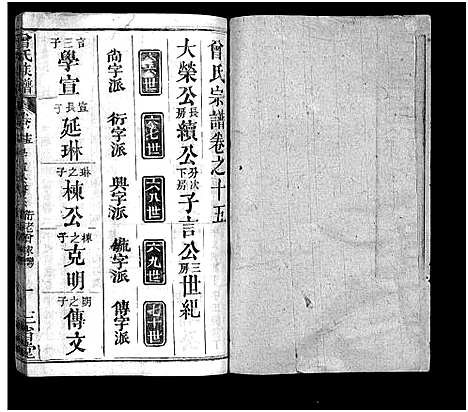 曾氏宗譜卷之十五
大榮公長房續公次房下房子言公三房世紀
六六世 六七世 六八世 六九世 七十世
尚字派 衍字派 興字派 毓字派 傳字派
言三子 學宣 宣長子 延琳 琳之子 棟公 棟之子 克明 明之子 傳文
曾氏族譜
三省堂